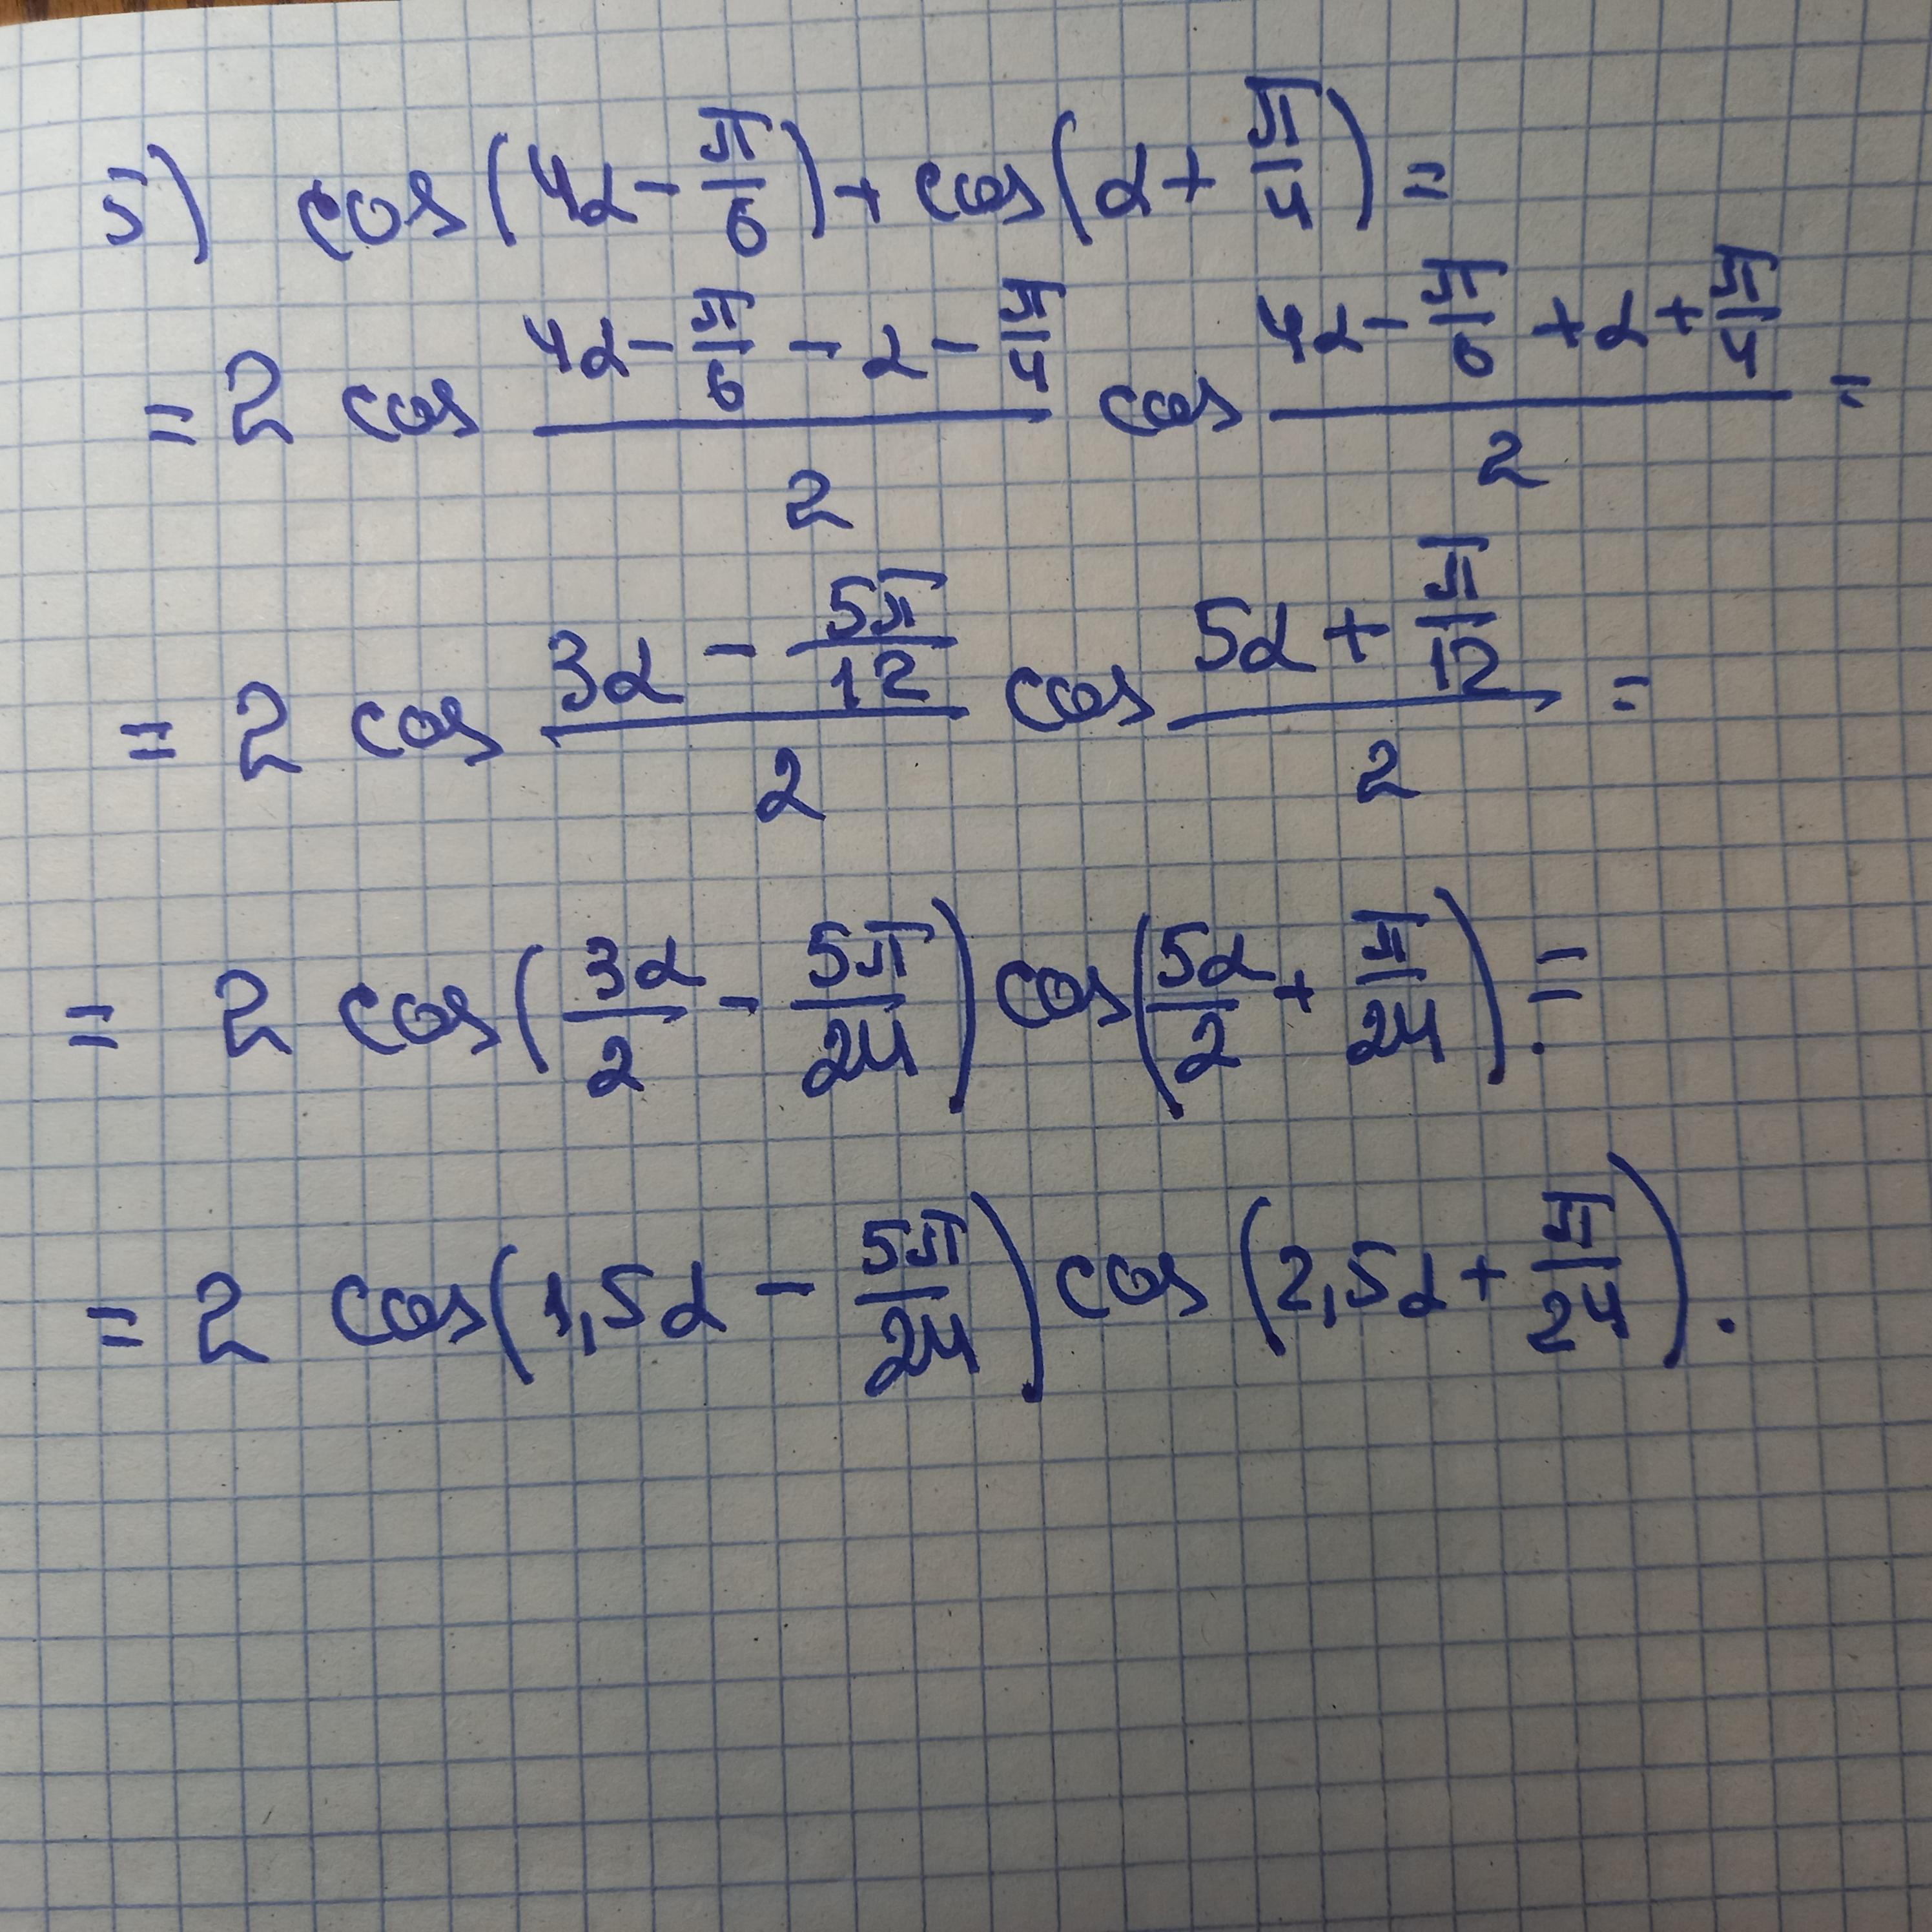 5) cos(4α - π/6) + cos(α + π/4) =
= 2 cos (4α - π/6 - α - π/4)/2 cos (4α - π/6 + α + π/4)/2 =
= 2 cos (3α - 5π/12)/2 cos (5α + π/12)/2 =
= 2 cos(3α/2 - 5π/24) cos(5α/2 + π/24). =
= 2 cos(1,5α - 5π/24) cos(2,5α + π/24).